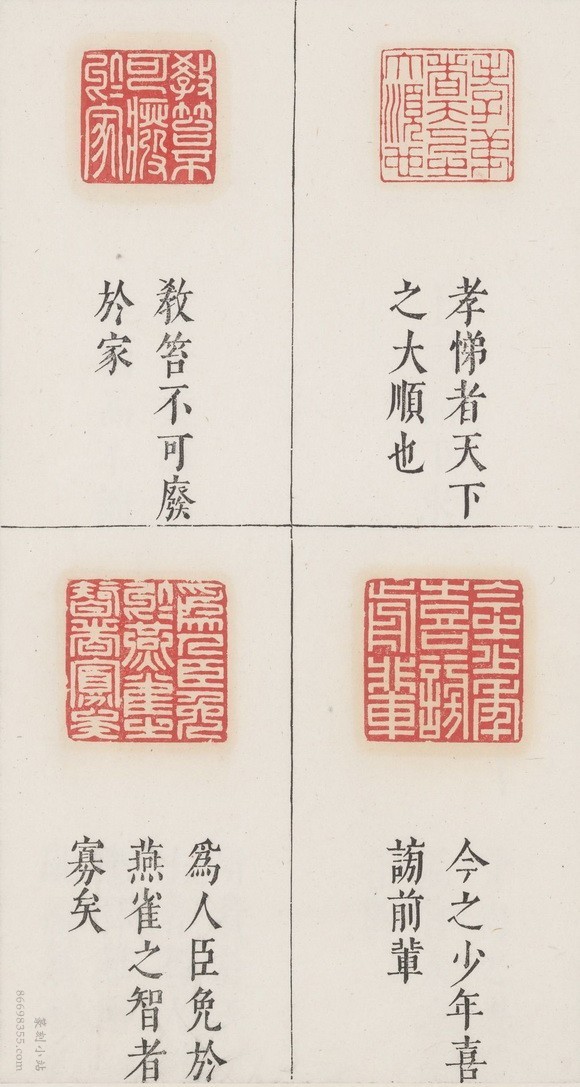 孝悌者天下
之大順也
教笞不可廢
於家
今之少年喜
謗前輩
為人臣免於
燕雀之智者
寡矣
篆刻小站
86698355.com